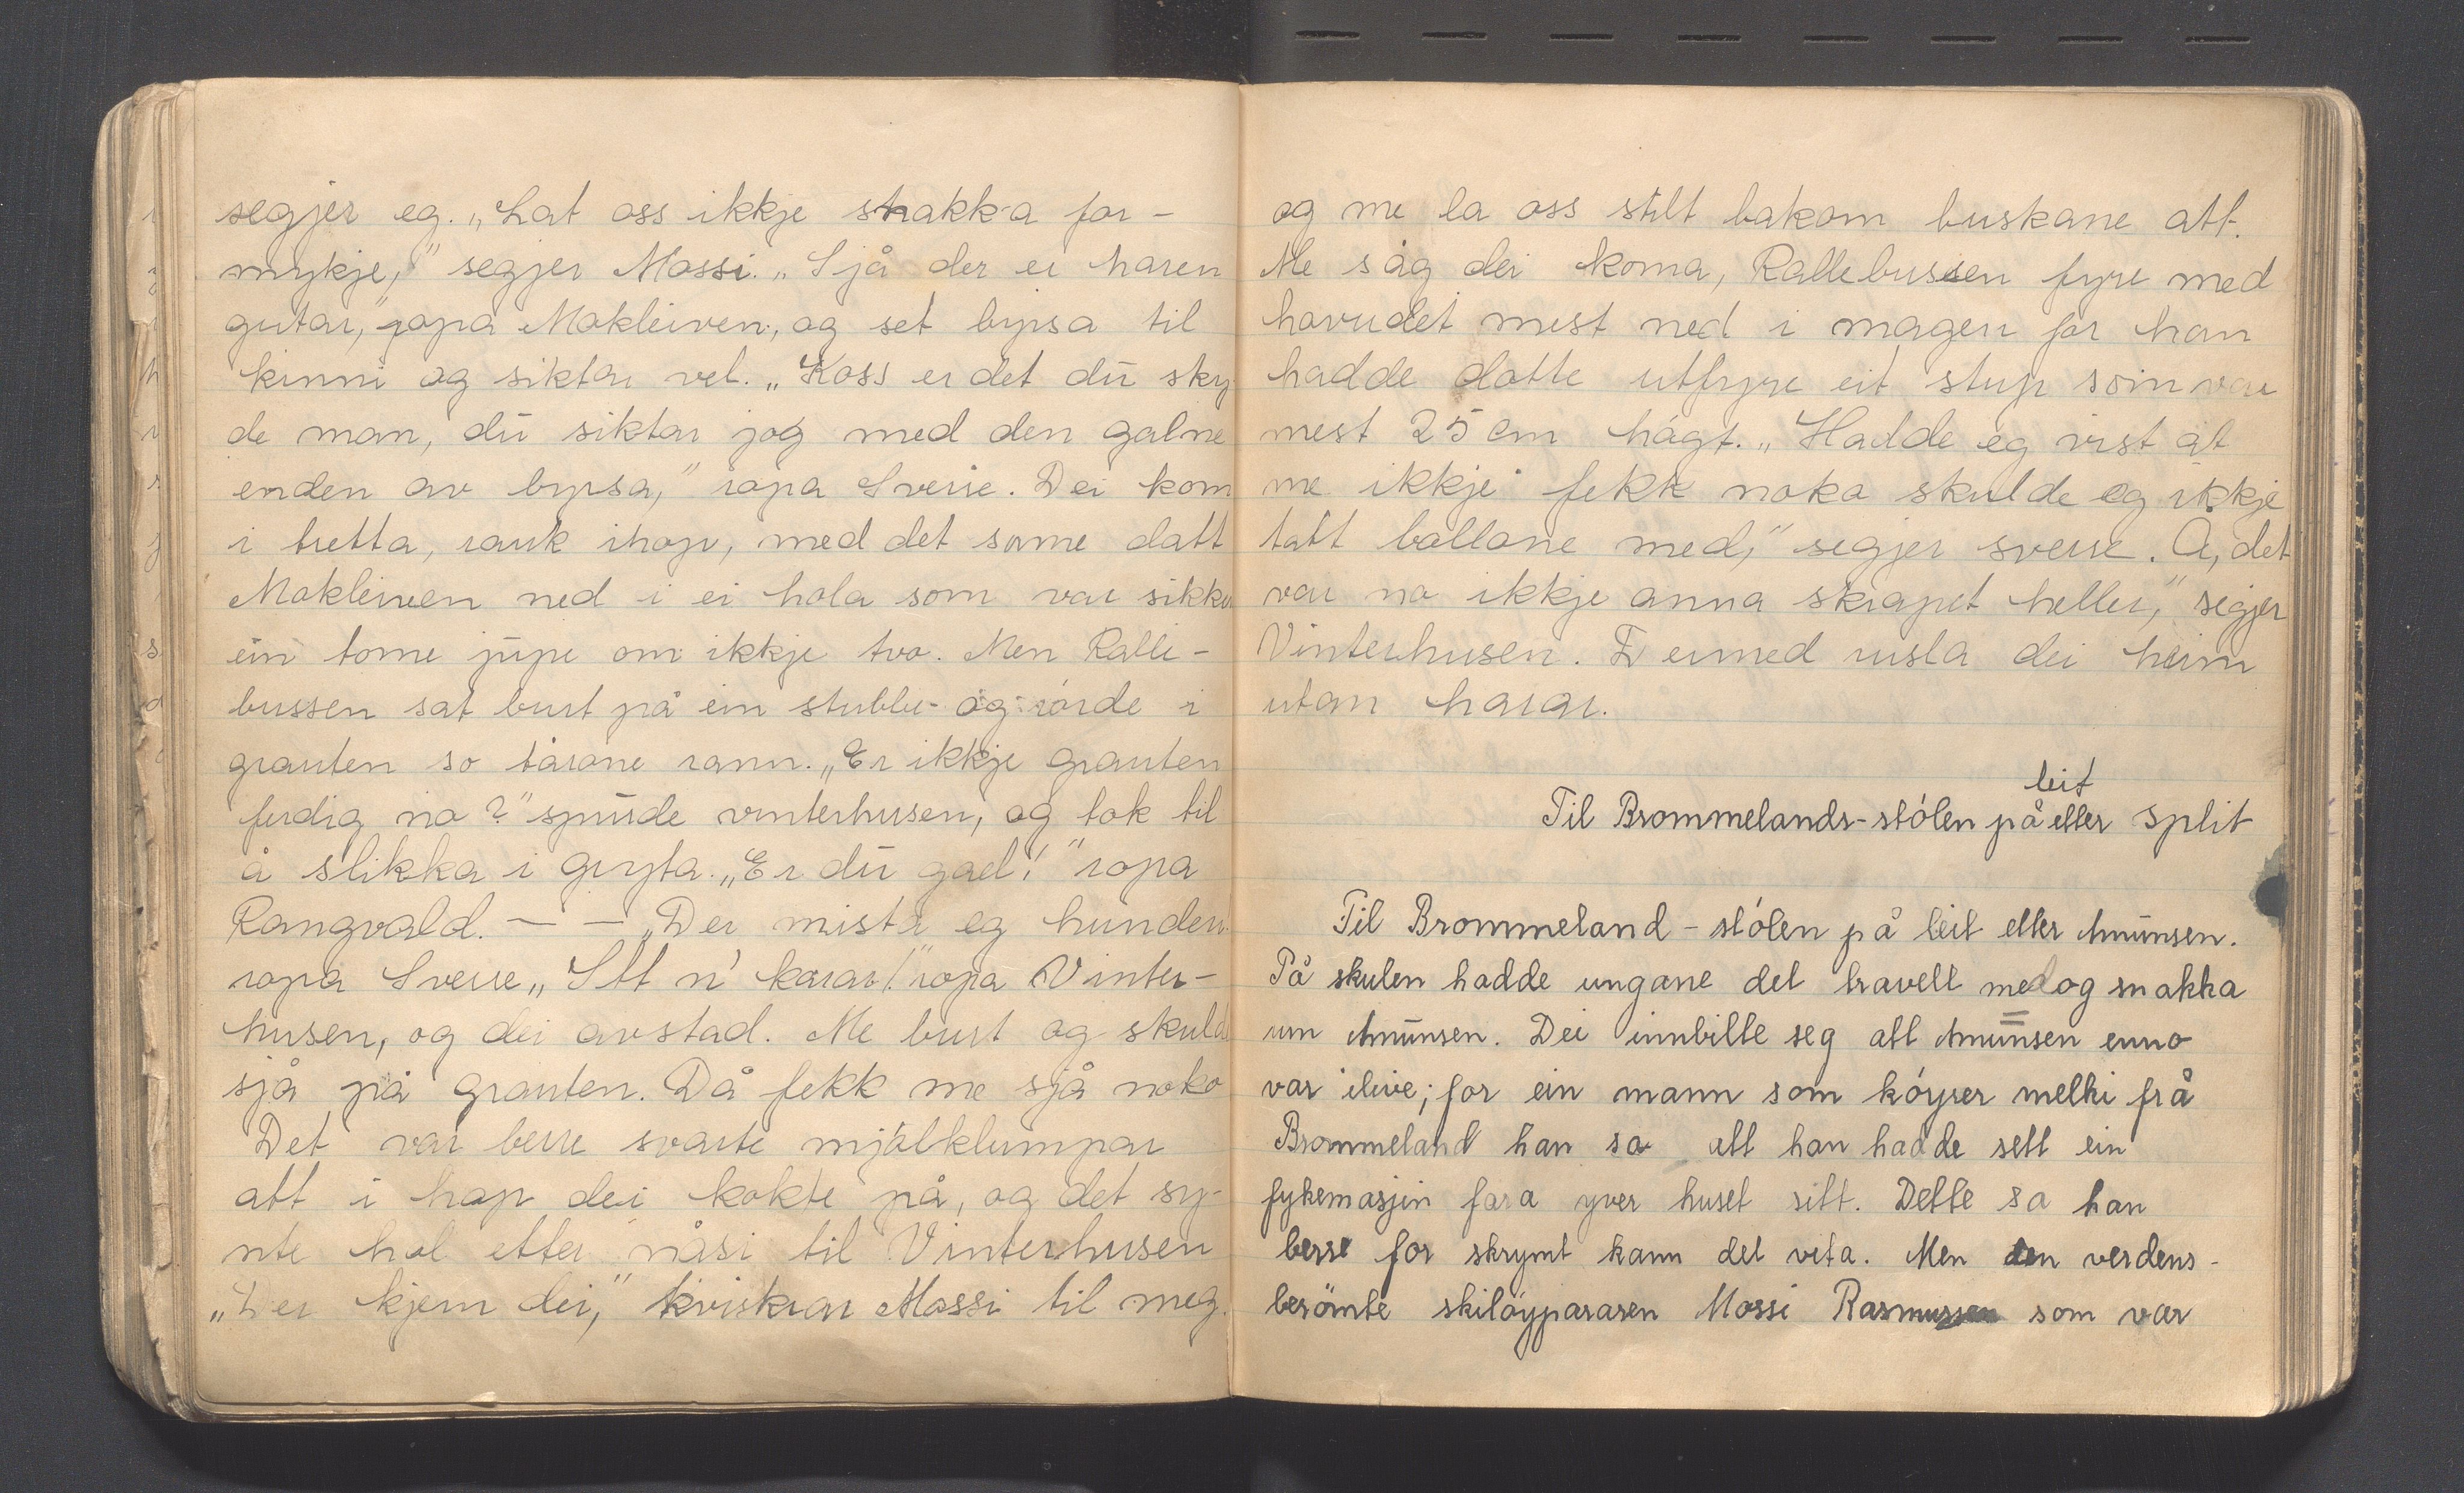 segjer eg. „Lat oss ikkje snakka for-
mykje,” segjer Mossi. „Sjå der er haren
gutar,” ropa Mokleiven, og set byrsa til
kinni og siktar vel. „Koss er det dū sky
de man, dū siktar jog med den galne
enden av byrsa,” ropa Sverre. Dei kom
i tretta, rauk ihop, med det same datt
Mokleiven ned i ei hola som var sikker
ein tome jūpe om ikkje tvo. Men Ralle-
bussen sat burt på ein stubbe og rórde i
grauten so tårane rann. „Er ikkje grauten
ferdig no?” spūrde vinterhusen, og tok til
å slikka i gryta. „Er dū gael!” ropa
Rangvald. — — „Der mista eg hunden
ropa Sverre „Itt n' karar!” ropa Vinter-
husen, og dei avstad. Me burt og skulde
sjå på grauten. Då fekk me sjå noko
Det var berre svarte mjólklumpar
att i hop dei kokte på, og det sy-
nte hol etter nåsi til Vinterhusen
„Der kjem dei,” kviskrar Mossi til meg.
og me la oss stilt bakom buskane att.
Me såg dei koma, Rallebussen fyre med
hovudet mest ned i magen for han
hadde dotte utfyre eit stup som var
mest 25 cm hågt. „Hadde eg vist at
me ikkje fekk noko skulde eg ikkje
tatt bollane med,” segjer sverre. Å, det
var no ikkje anna skrapet heller,” segjer
Vinterhusen. Dermed rusla dei heim
utan harar.
leit
Til Brommelands-stólen på etter Split
Til Brommeland-stólen på leit etter Amūnsen.
På skulen hadde ungane det travelt med og snakka
um Amūnsen. Dei innbilte seg att Amūnsen enno
var ilive; for ein mann som kóyrer melki frå
Brommeland han sa att han hadde sett ein
fykemasjin fara yver huset sitt. Dette sa han
berre for skrymt kann det vita. Men den verdens-
berömte skilöypararen Mossi Rasmussen som var